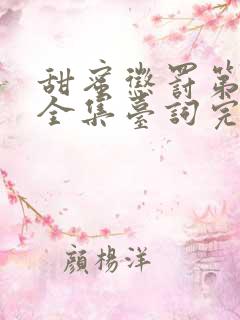 甜蜜懲罰第
全集臺詞完
顏楊洋